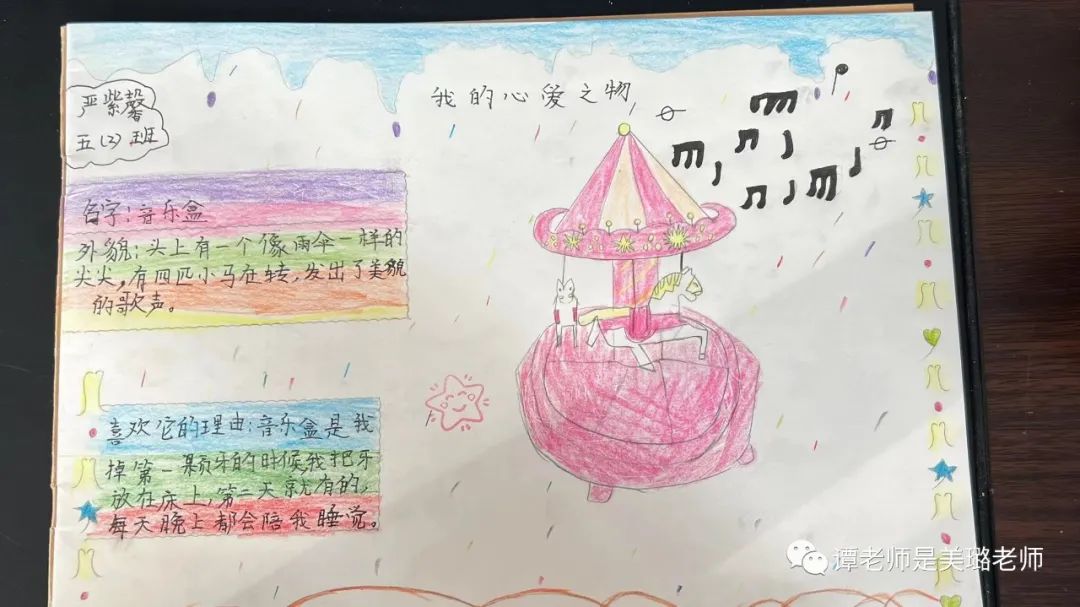 我的心爱之物
严紫馨
五(2)班
名字:音乐盒
外貌:头上有一个像雨伞一样的
尖尖,有四匹小马在转,发出了美貌
的歌声。
喜欢它的理由:音乐盒是我
掉第一颗牙的时候,我把牙
放在床上,第二天就有的,
每天晚上都会陪我睡觉。
谭老师是美璐老师